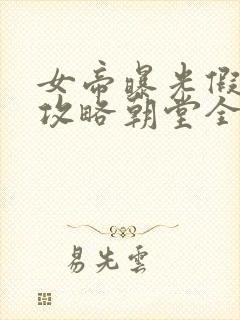 女帝曝光假
攻略朝堂全
易先雲